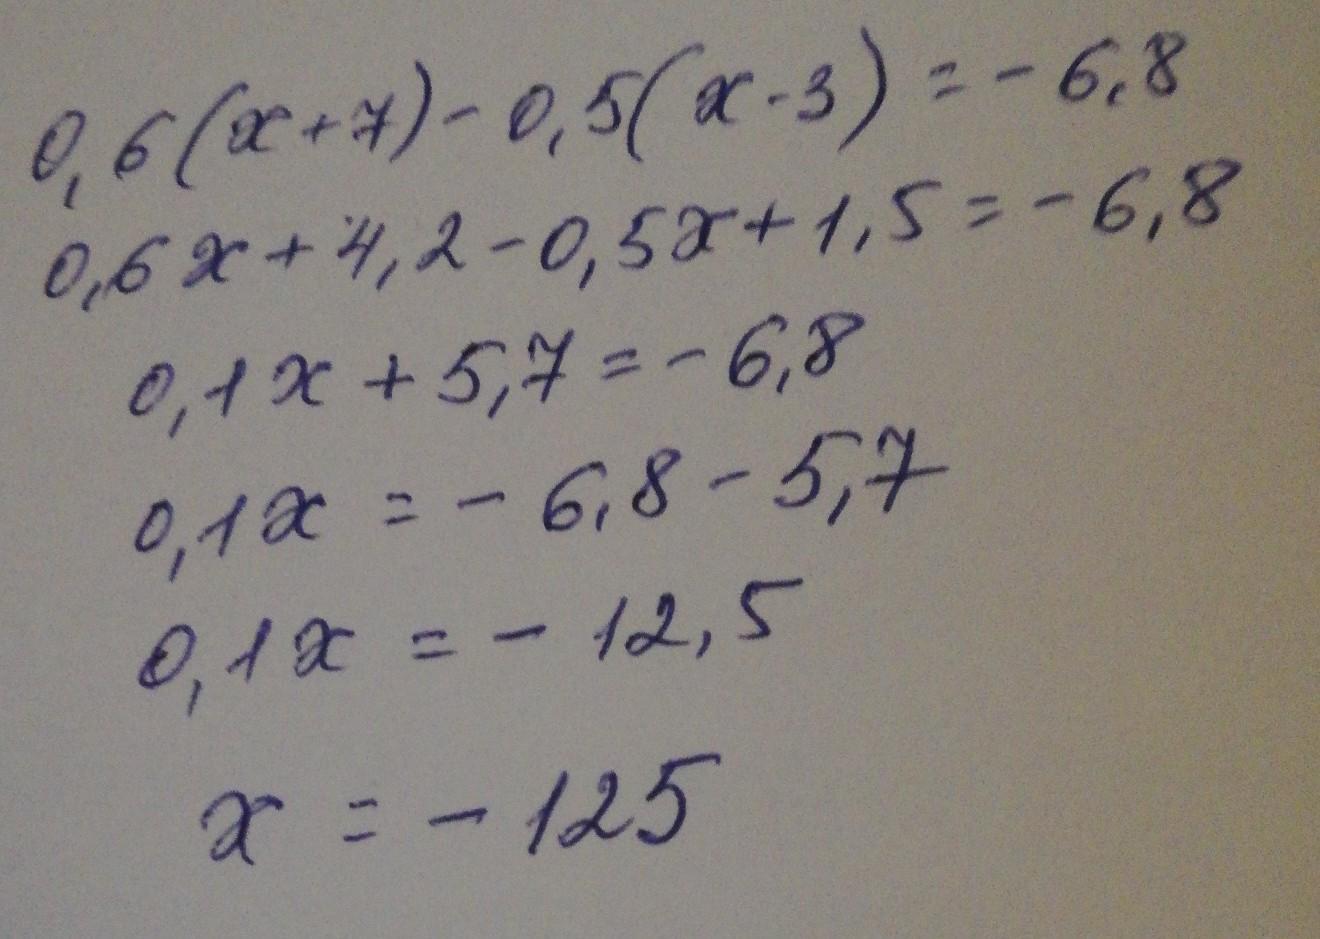 0,6(x+7)-0,5(x-3)=-6,8
0,6x+4,2-0,5x+1,5=-6,8
0,1x+5,7=-6,8
0,1x=-6,8-5,7
0,1x=-12,5
x=-125